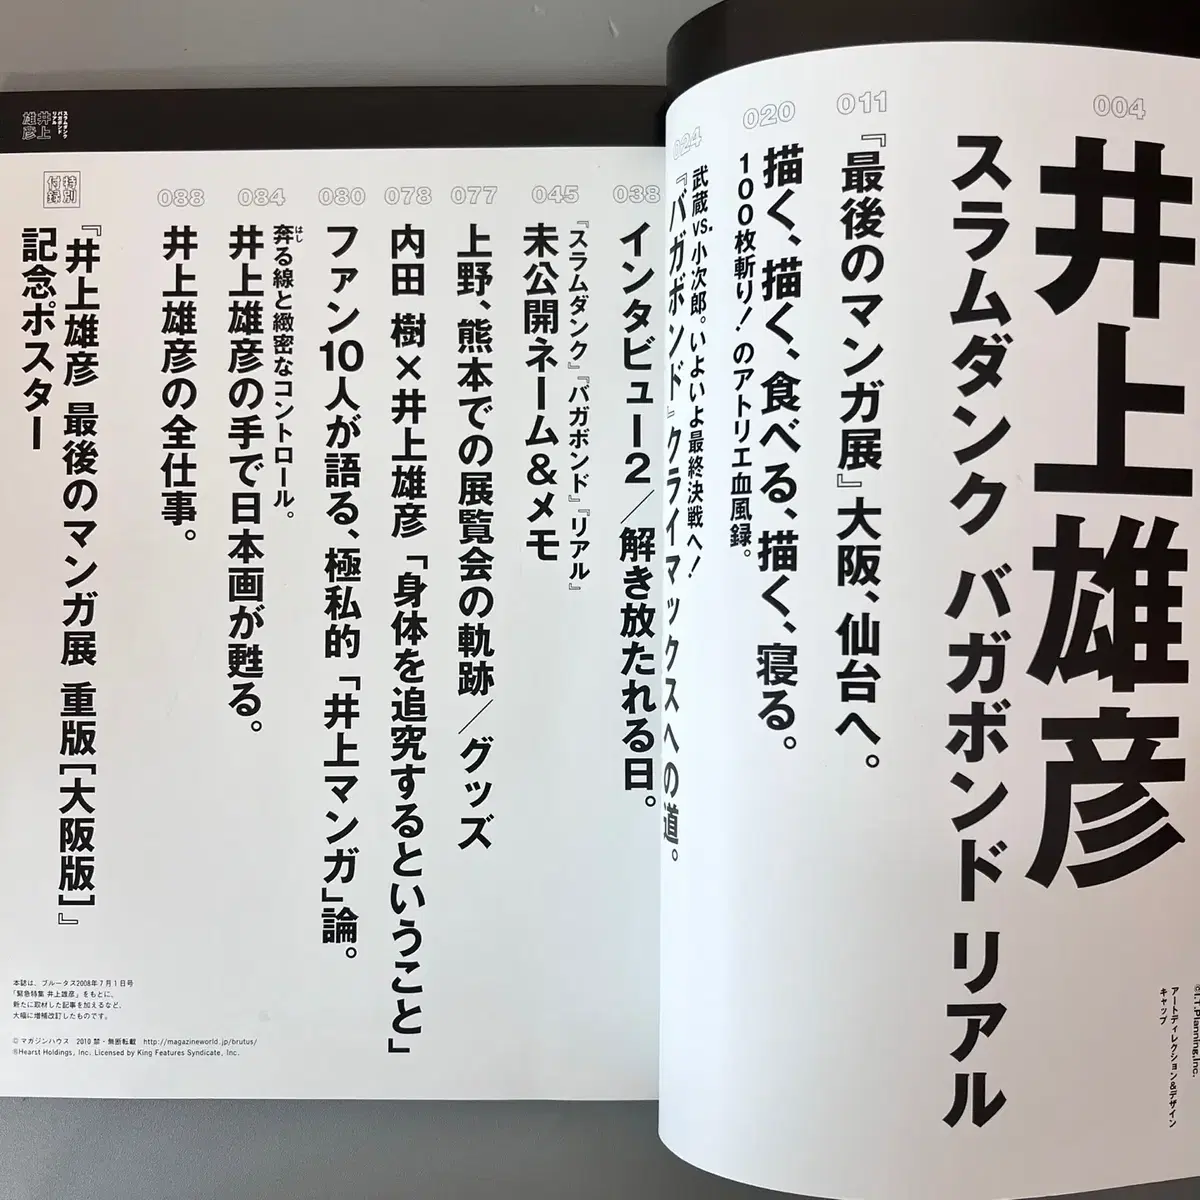 004
井上雄彦
スラムダンク バガボンド リアル
011
『最後のマンガ展』大阪、仙台へ。
020
描く、描く、食べる、描く、寝る。
100枚斬り！のアトリエ血風録。
024
武蔵vs.小次郎。いよいよ最終決戦へ！
『バガボンド』クライマックスへの道。
I.T.Planning,Inc.
アートディレクション＆デザイン
キャップ
038
インタビュー2／解き放たれる日。
045
『スラムダンク』『バガボンド』『リアル』
未公開ネーム＆メモ
077
上野、熊本での展覧会の軌跡／グッズ
078
内田 樹×井上雄彦「身体を追究するということ」
080
ファン10人が語る、極私的「井上マンガ」論。
084
奔る線と緻密なコントロール。
はし
井上雄彦の手で日本画が甦る。
088
井上雄彦の全仕事。
特別
付録
『井上雄彦 最後のマンガ展 重版［大阪版］』
記念ポスター
スラムダンク
バガボンド
リアル
井上
雄彦
本誌は、ブルータス2008年7月1日号
「緊急特集 井上雄彦」をもとに、
新たに取材した記事を加えるなど、
大幅に増補改訂したものです。
© マガジンハウス 2010 禁・無断転載 http://magazineworld.jp/brutus/
®Hearst Holdings, Inc. Licensed by King Features Syndicate, Inc.